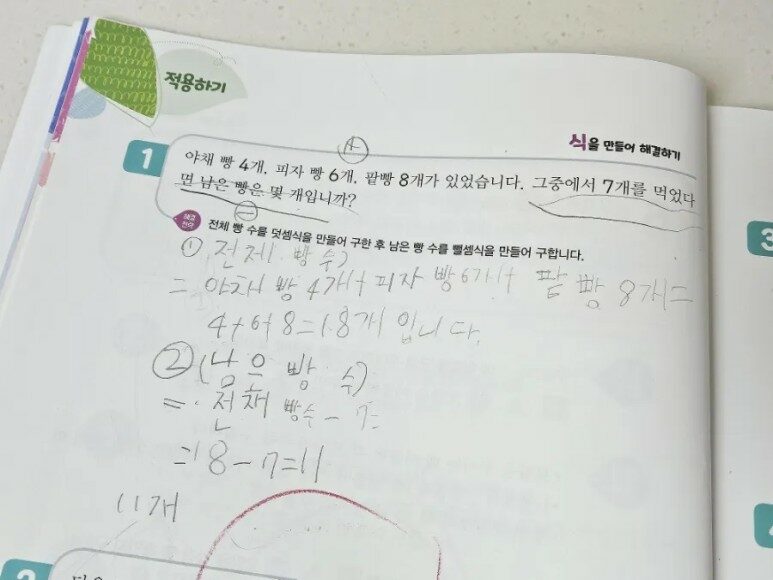 적용하기
식을 만들어 해결하기
1
야채 빵 4개, 피자 빵 6개, 팥빵 8개가 있었습니다. 그중에서 7개를 먹었다
면 남은 빵은 몇 개입니까?
해결
전략
전체 빵 수를 덧셈식을 만들어 구한 후 남은 빵 수를 뺄셈식을 만들어 구합니다.
① 전체 빵 수)
= 야채 빵 4개+피자 빵 6개+ 팥 빵 8개=
4+6+8=18개 입니다.
② (남은 빵 수)
= 전체 빵수 - 7=
=18-7=11
11개
2
3